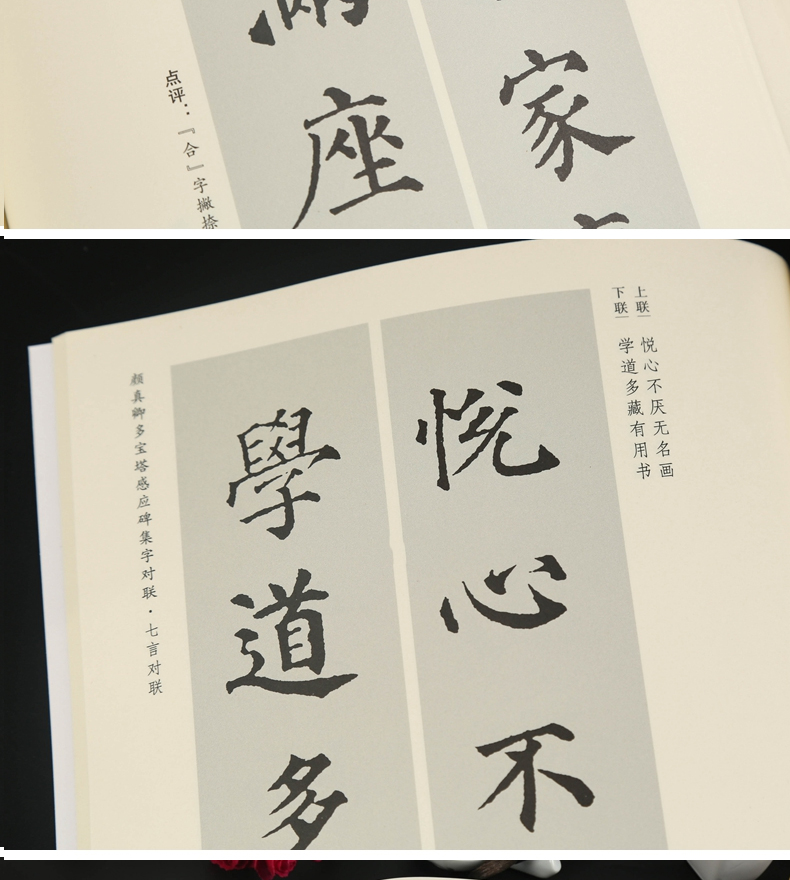 家
座
点评：『合』字撇捺
上联｜悦心不厌无名画
下联｜学道多藏有用书
悦心不
學道多
颜真卿多宝塔感应碑集字对联·七言对联